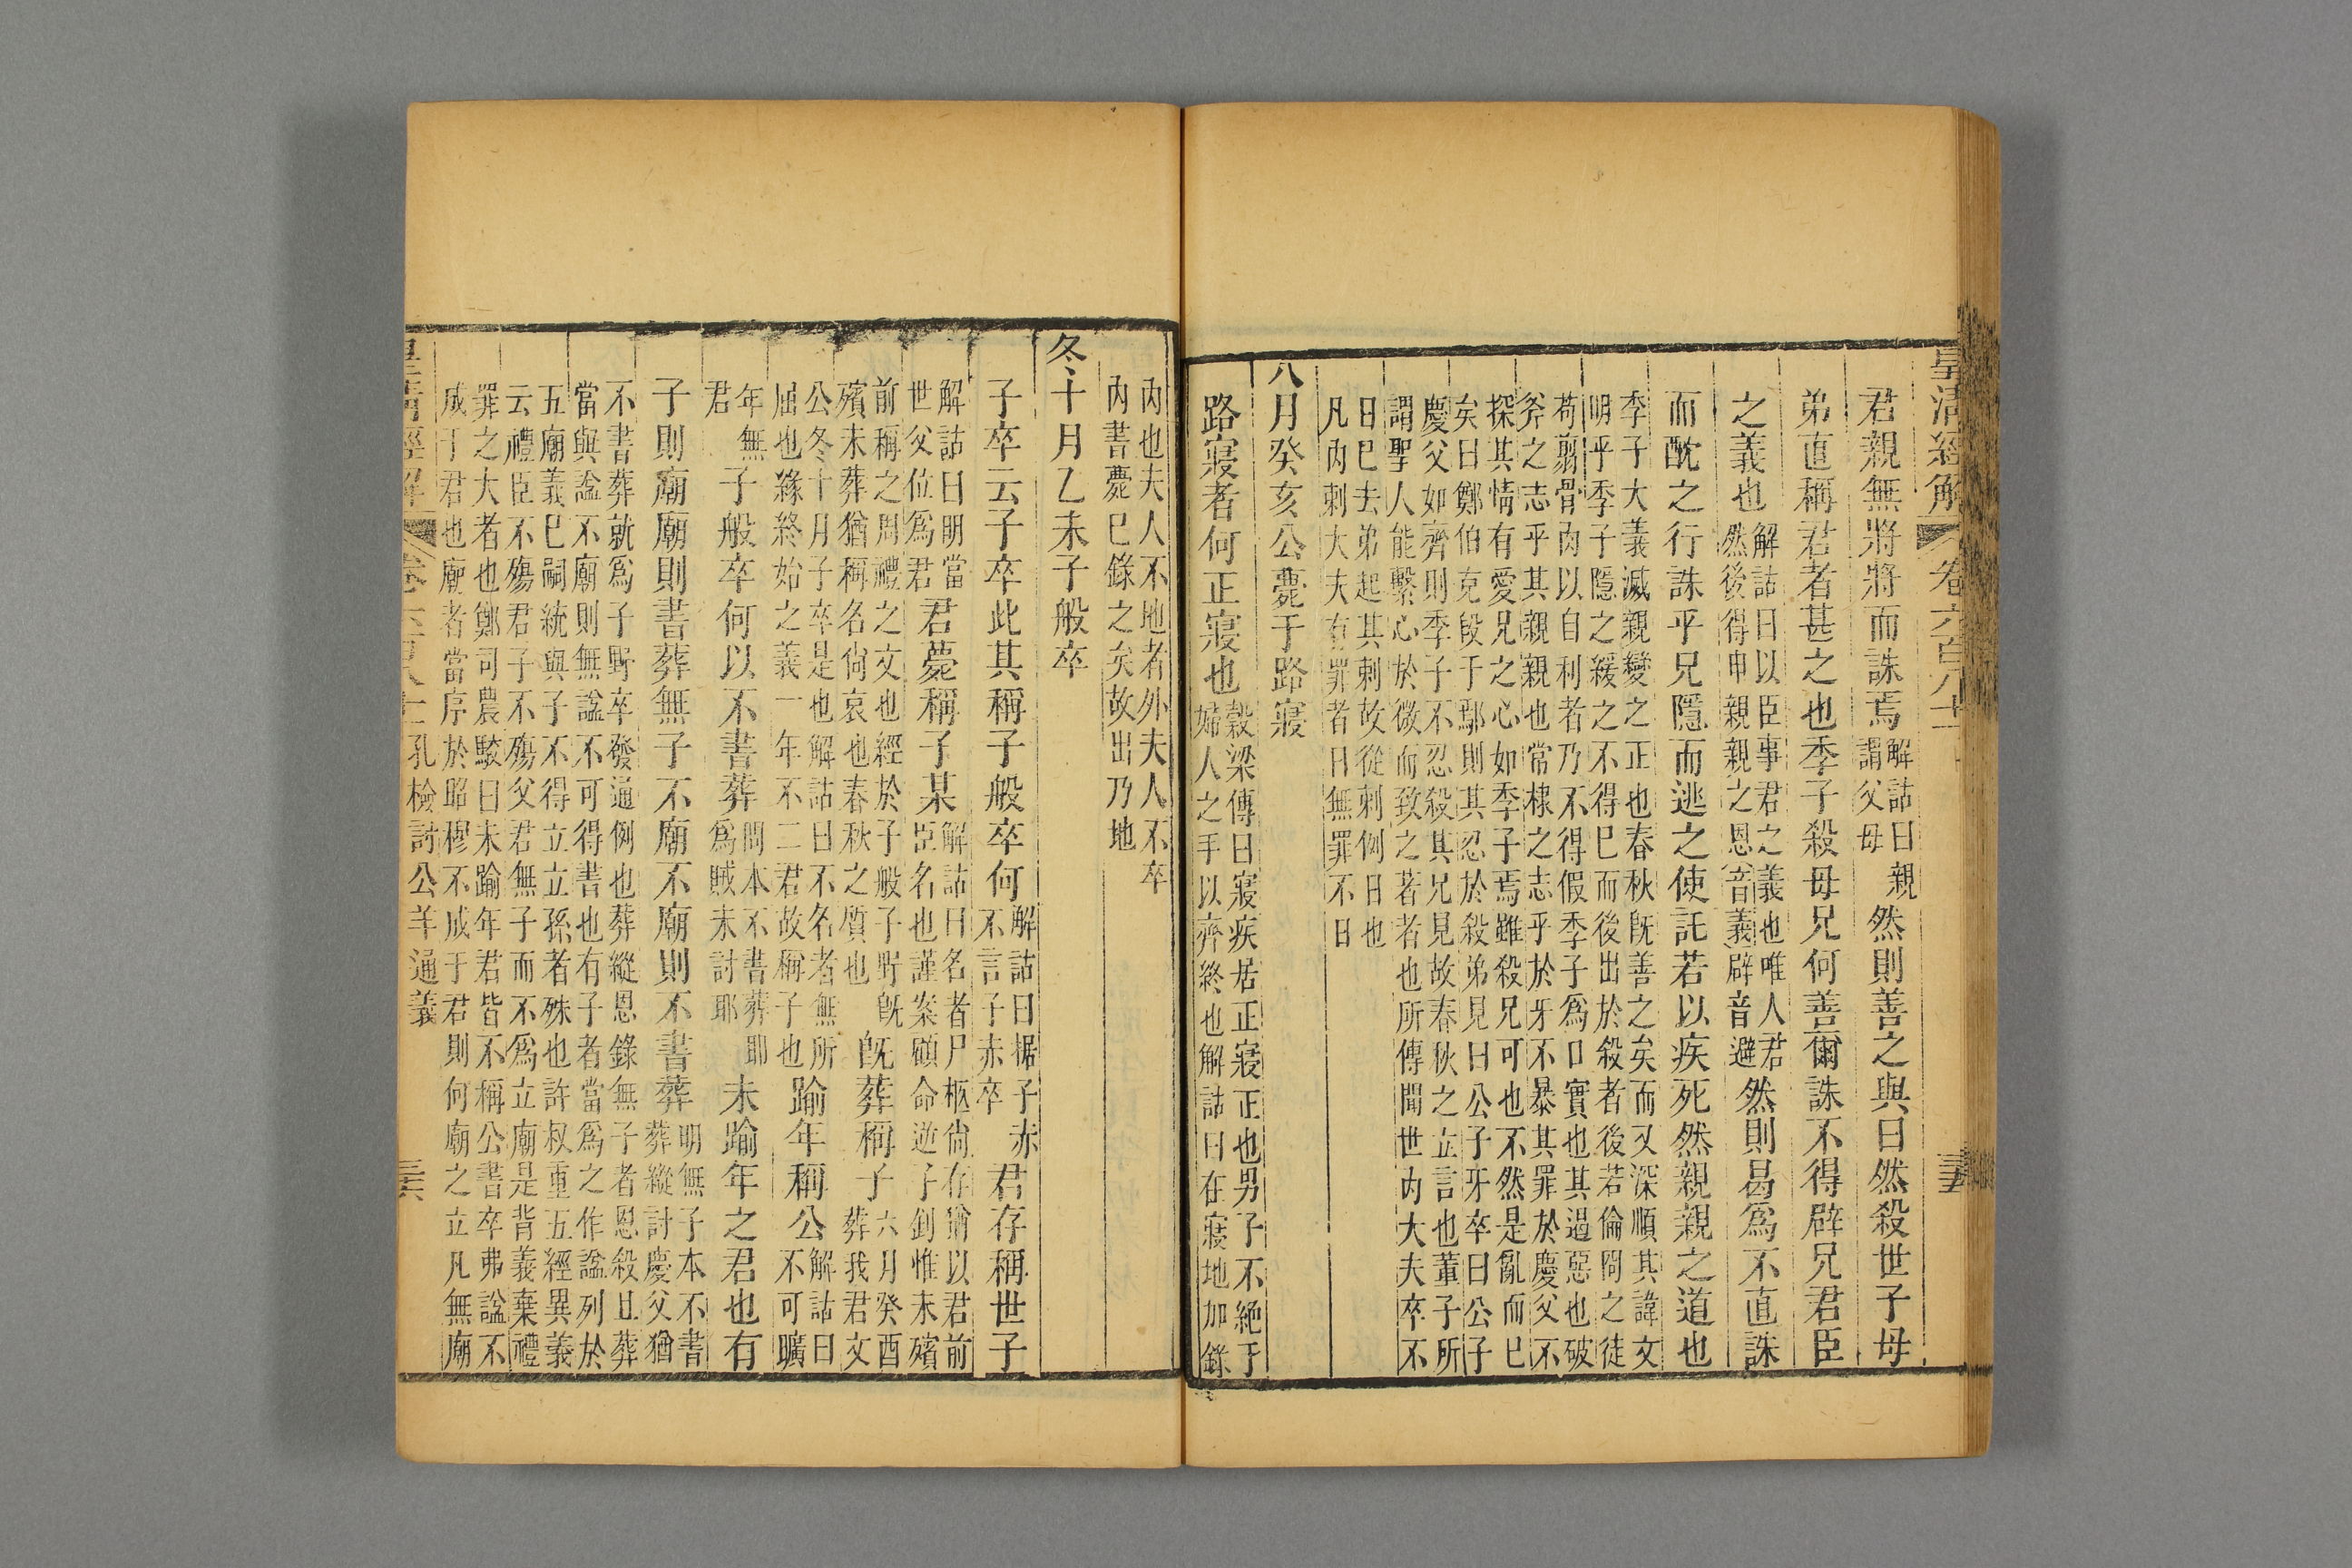 皇清經解 卷六百八十一
君親無將將而誅焉解詁曰親謂父母然則善之與曰然殺世子母
弟直稱君者甚之也季子殺母兄何善爾誅不得辟兄君臣
之義也解詁曰以臣事君之義也唯人君然後得申親親之恩音義辟音避然則曷爲不直誅
而酖之行誅乎兄隱而逃之使託若以疾死然親親之道也
季子大義滅親變之正也春秋既善之矣而又深順其諱文
明乎季子隱之緩之不得巳而後出於殺者後若倫問之徒
苟翦骨肉以自利者乃不得假季子爲口實也其過惡也破
斧之志乎其親親也常棣之志乎於牙不暴其罪於慶父不
探其情有愛兄之心如季子焉雖殺兄可也不然是亂而巳
矣曰鄭伯克段于鄢則其忍於殺弟見曰公子牙卒曰公子
慶父如齊則季子不忍殺其兄見故春秋之立言也董子所
謂聖人能繫心於微而致之著者也所傳聞世內大夫卒不
日巳去弟起其刺故從刺例日也
凡內刺大夫有罪者日無罪不日
八月癸亥公薨于路寢
路寢者何正寢也穀梁傳曰寢疾居正寢正也男子不絕于婦人之手以齊終也解詁曰在寢地加錄
內也夫人不地者外夫人不卒
內書薨巳錄之矣故出乃地
冬十月乙未子般卒
子卒云子卒此其稱子般卒何解詁曰据子赤不言子赤卒君存稱世子
解詁曰明當世父位爲君君薨稱子某解詁曰名者尸柩尚存猶以君前臣名也謹案顧命逆子釗惟未殯
前稱之周禮之文也經於子般子野既殯未葬猶稱名尚哀也春秋之質也既葬稱子六月癸酉葬我君文
公冬十月子卒是也解詁曰不名者無所屈也緣終始之義一年不二君故稱子也踰年稱公解詁曰不可曠
年無君子般卒何以不書葬問本不書葬即爲賊未討耶未踰年之君也有
子則廟廟則書葬無子不廟不廟則不書葬明無子本不書葬縱討慶父猶
不書葬就爲子野卒發通例也葬縱恩錄無子者恩殺且葬
當與謚不廟則無謚不可得書也有子者當爲之作謚列於
五廟義巳嗣統與子不得立立孫者殊也許叔重五經異義
云禮臣不殤君子不殤父君無子而不爲立廟是背義棄禮
罪之大者也鄭司農駮曰未踰年君皆不稱公書卒弗謚不
成于君也廟者當序於昭穆不成于君則何廟之立凡無廟
皇清經解 卷六百八十一 孔檢討公羊通義